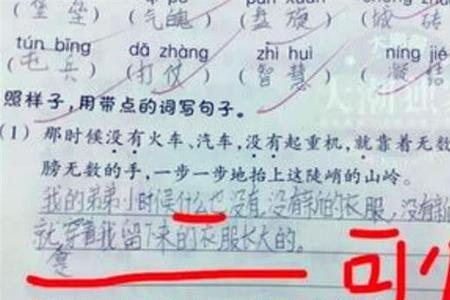 (堡垒)(气魄)(盘旋)(城砖
tún bīng dǎ zhàng zhì huì níng jié
(屯兵)(打仗)(智慧)(凝结
照样子,用带点的词写句子。
(1) 那时候没有火车、汽车,没有起重机,就靠着无数
膀无数的手,一步一步地抬上这陡峭的山岭。
我的弟弟小时候什么也没有,没有新的衣服,没有新
就穿着我留下来的衣服长大的。